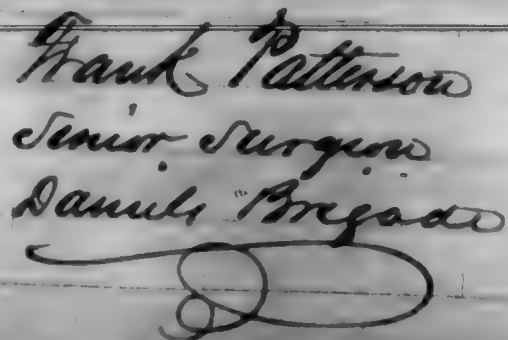 Frank Patterson
Senior Surgeon
Daniels Brigade